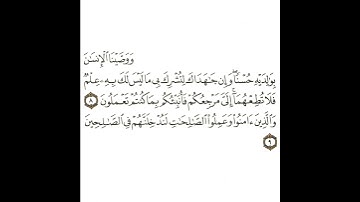 وَوَصَّيْنَا ٱلْإِنسَٰنَ
بِوَٰلِدَيْهِ حُسْنًا ۖ وَإِن جَٰهَدَاكَ لِتُشْرِكَ بِى مَا لَيْسَ لَكَ بِهِۦ عِلْمٌ
فَلَا تُطِعْهُمَآ ۚ إِلَىَّ مَرْجِعُكُمْ فَأُنَبِّئُكُم بِمَا كُنتُمْ تَعْمَلُونَ ٨
وَٱلَّذِينَ ءَامَنُوا۟ وَعَمِلُوا۟ ٱلصَّٰلِحَٰتِ لَنُدْخِلَنَّهُمْ فِى ٱلصَّٰلِحِينَ
٩